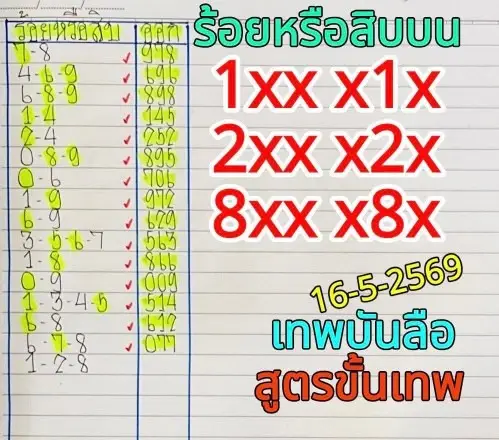 ร้อยหรือสิบ ออก
7-8 ✓ 978
4-6-9 ✓ 696
6-8-9 ✓ 898
1-4 ✓ 145
2-4 ✓ 252
0-8-9 ✓ 895
0-6 ✓ 706
1-9 ✓ 972
6-9 ✓ 629
3-5-6-7 ✓ 563
1-8 ✓ 866
0-9 ✓ 009
1-3-4-5 ✓ 514
6-8 ✓ 612
6-7-8 ✓ 077
1-2-8
ร้อยหรือสิบบน
1xx x1x
2xx x2x
8xx x8x
16-5-2569
เทพบันลือ
สูตรขั้นเทพ